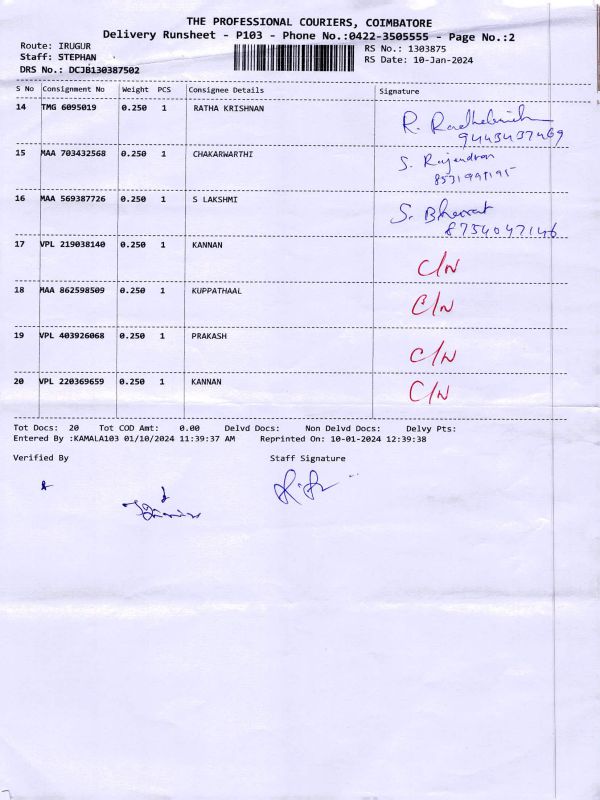 THE PROFESSIONAL COURIERS, COIMBATORE
Delivery Runsheet - P103 - Phone No.:0422-3505555 - Page No.:2
Route: IRUGUR RS No.: 1303875
Staff: STEPHAN RS Date: 10-Jan-2024
DRS No.: DCJB130387502
S No Consignment No Weight PCS Consignee Details Signature
14 TMG 6095019 0.250 1 RATHA KRISHNAN
9443437469
15 MAA 703432568 0.250 1 CHAKARWARTHI S. Rajendran
16 MAA 569387726 0.250 1 S LAKSHMI S. Bharat
8754047146
17 VPL 219038140 0.250 1 KANNAN C/N
18 MAA 862598509 0.250 1 KUPPATHAAL C/N
19 VPL 403926068 0.250 1 PRAKASH C/N
20 VPL 220369659 0.250 1 KANNAN C/N
Tot Docs: 20 Tot COD Amt: 0.00 Delvd Docs: Non Delvd Docs: Delvy Pts:
Entered By :KAMALA103 01/10/2024 11:39:37 AM Reprinted On: 10-01-2024 12:39:38
Verified By Staff Signature